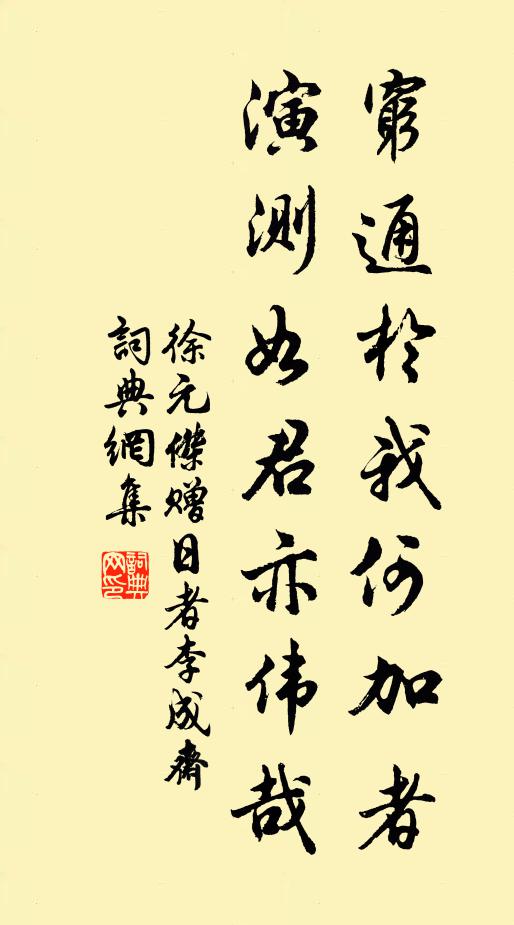 窮通於我何加者
演測如君亦伟哉
徐元傑赠日者李成齋
詞典網集
詞典网印